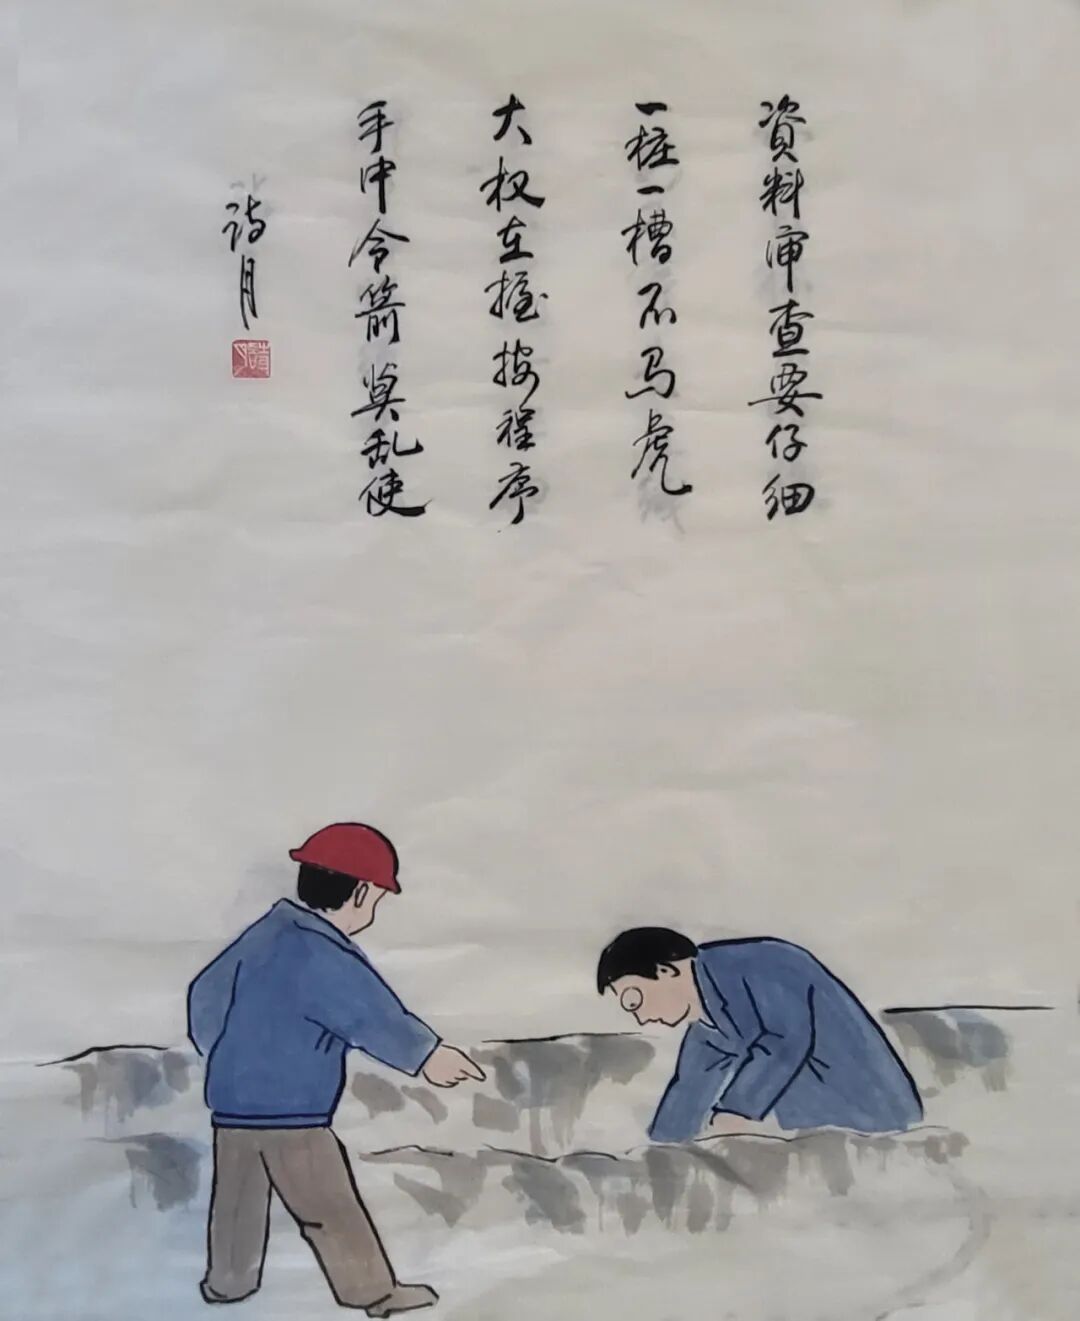 资料审查要仔细
一桩一槽不马虎
大权在握按程序
手中令箭莫乱使
诗月